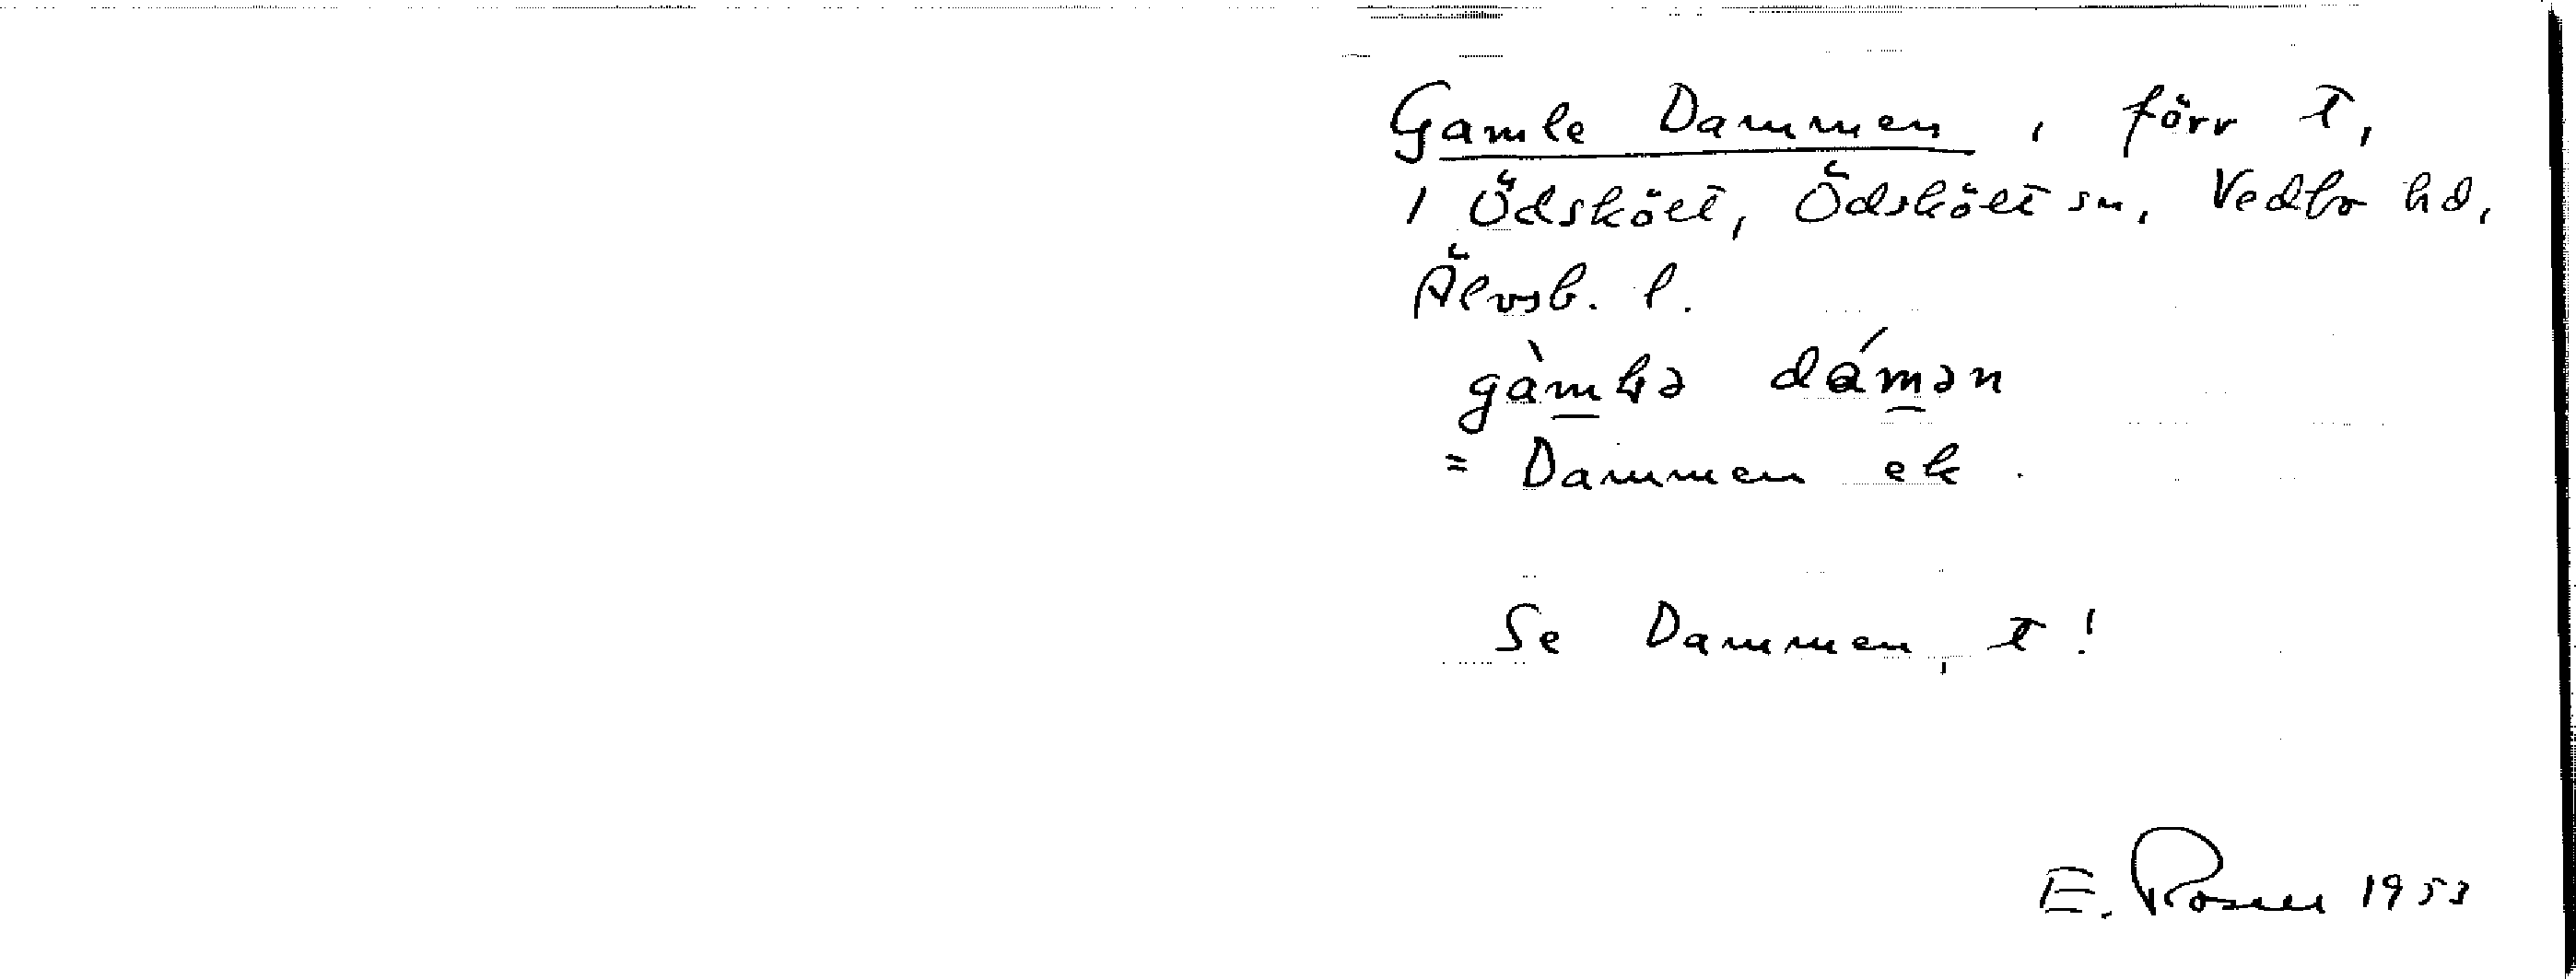 Gamle Dammen, förr t,
i Ödskölt, Ödskölt sn, Vedbo hd,
Älvsb. l.
gàm̲ɬə dám̲ən
= Dammen ek.
Se Dammen, t!
E. Rosell 1953